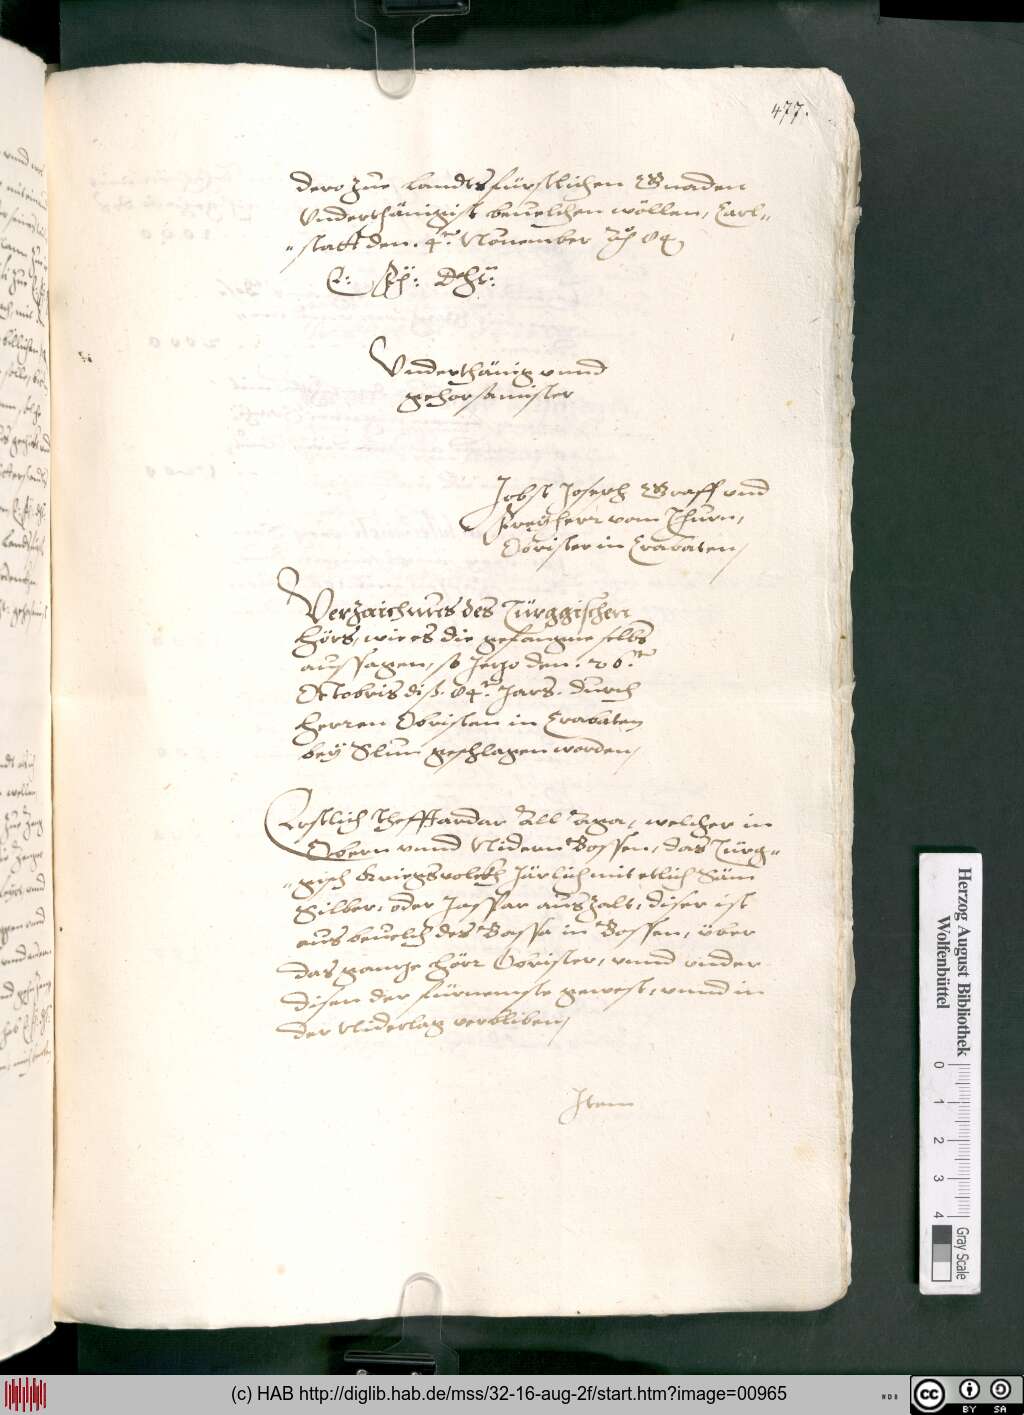 477.
dero zue landtsfürstlichen Gnaden
Vnderthänigist beuelchen wöllen, Carl-
-statt den. 4.ᵗ Nouember Aº 84,
E: Fr: Dht:
Vnderthänig vnnd
gehorsamister
Jobst Joseph Graff vnd
Freÿherr vom Thurn,
Obrister in Crabaten,
Verzaichnus des Türggischen
Hörs, wie es die gefangne selbs
aussagen, so Jezo den. 26.ᵗᵉⁿ
Octobris diß. 84.ᵗ Jars. durch
Herren Obristen in Crabaten
beÿ Sluin geschlagen worden,
Erstlich Thefftardar Alli Aga, welcher in
Obern vnnd Nidern Bossen, das Türg-
-gisch Kriegsvolckh Järlich mit etlich Säm
Silber, oder Jasspar auszalt, diser ist
aus beuelch des Bassa in Bossen, über
das gantze Hörr Obrister, vnnd vnder
disen der fürnemste gewest, vnnd in
der Niderlag verbliben,
Item
Herzog August Bibliothek
Wolfenbüttel
0 1 2 3 4
Gray Scale
(c) HAB http://diglib.hab.de/mss/32-16-aug-2f/start.htm?image=00965
WDB
cc BY SA